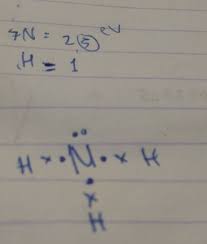 ₇N = 2,5 eV
₁H = 1
••
H ו N •× H
•
×
H